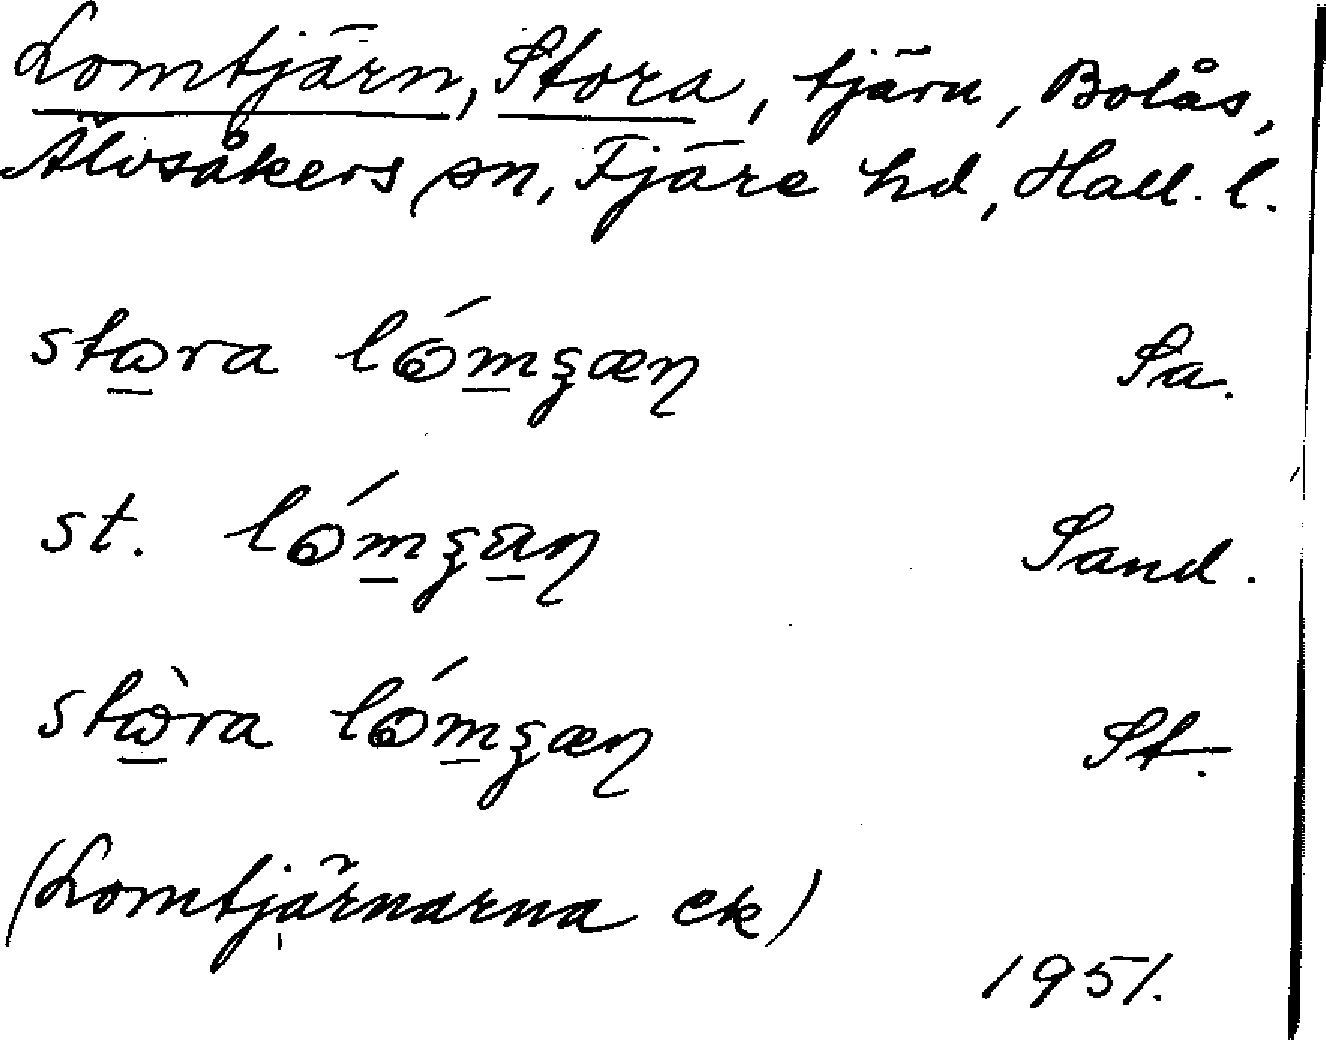 Lomtjärn, Stora, tjärn, Bolås,
Älvsåkers sn, Fjäre hd, Hall. l.
stω̲ra lɷ́m̲ʂæɳ Sa.
st. lɷ́m̲ʂa̲ɳ Sand.
stὼ̲ra lɷ́m̲ʂæɳ St.
(Lomtjärnarna ek)
1951.